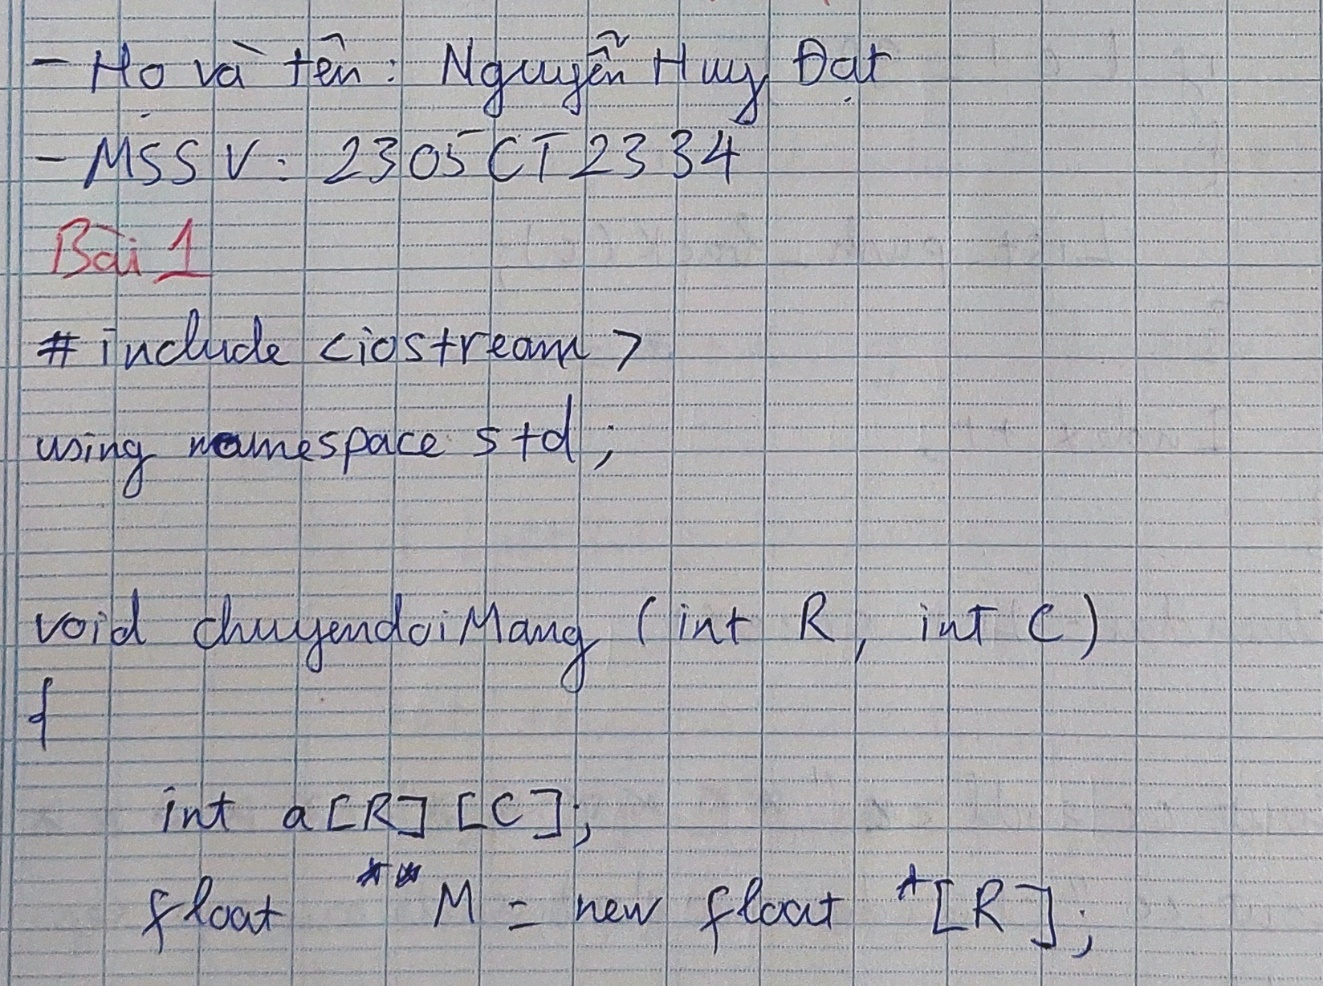 - Họ và tên: Nguyễn Huy Đạt
- MSSV: 2305CT2334
Bài 1
#include <iostream>
using namespace std;
void chuyendoiMang (int R, int C)
{
int a[R][C];
float **M = new float *[R];